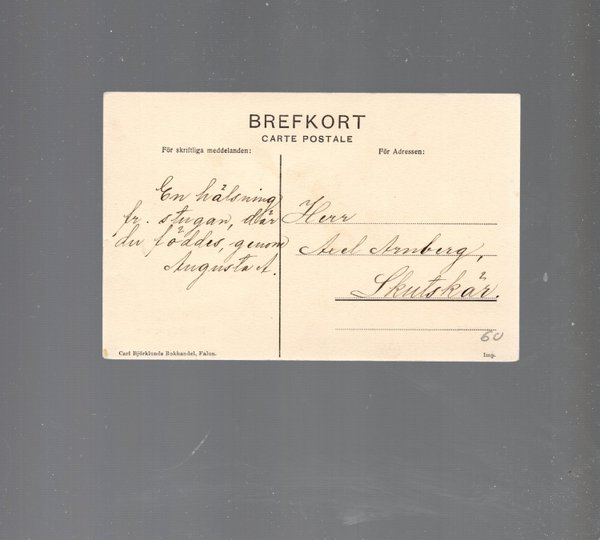 BREFKORT
CARTE POSTALE
För skriftliga meddelanden:
För Adressen:
En hälsning
fr. stugan, där
du föddes, genom
Augusta A.
Herr
Axel Arnberg,
Skutskär.
60
Carl Björklunds Bokhandel, Falun.
Imp.